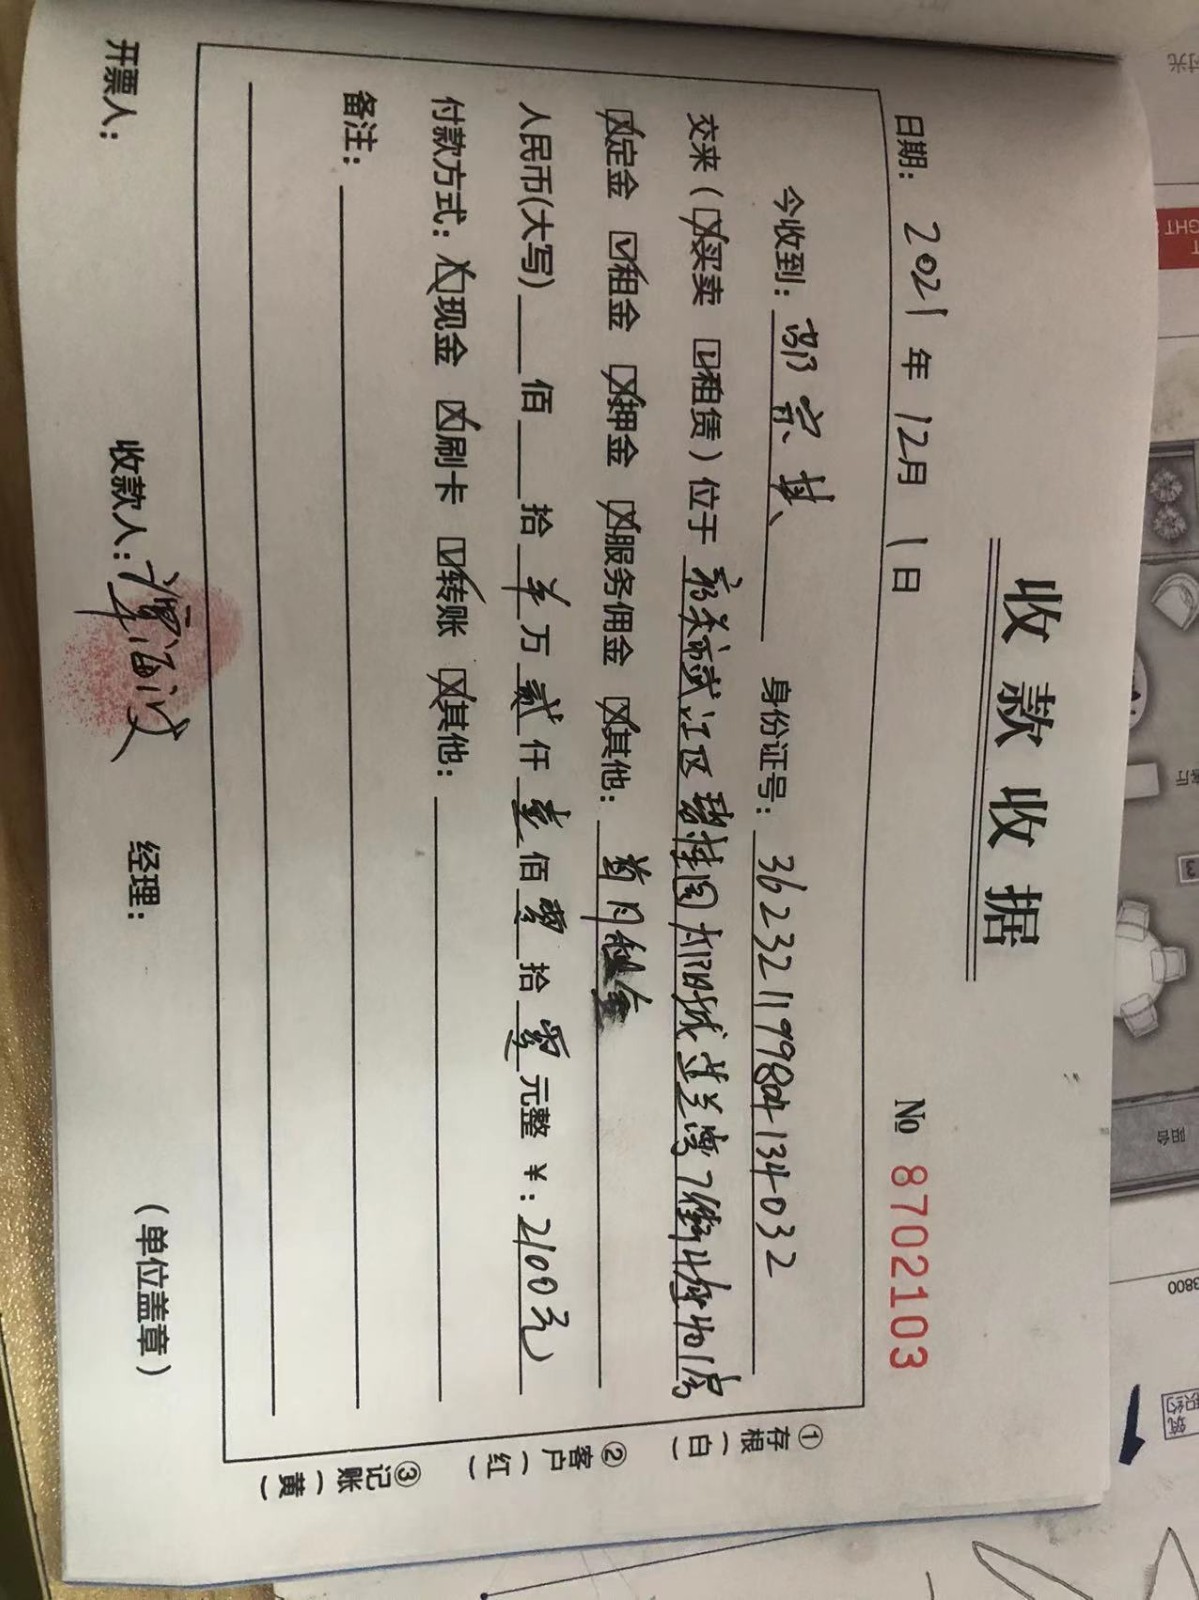 收款收据
№ 8702103
日期: 2021 年 12月 1日
今收到: 身份证号: 362321199804134032
交来(☒买卖 ☑租赁)位于 江区碧桂园 城 兰湾7街4座401房
☒定金 ☑租金 ☒押金 ☒服务佣金 ☒其他: 首月租金
人民币(大写) 佰 拾 万 贰 仟 壹 佰 零 拾 零 元整 ¥: 2100元)
付款方式: ☒现金 ☒刷卡 ☑转账 ☒其他:
备注:
开票人: 收款人: 经理: (单位盖章)
①存根(白)
②客户(红)
③记账(黄)
3800
阳台